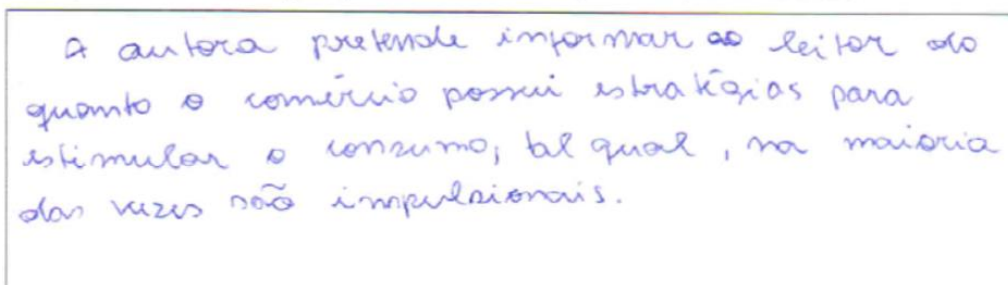 A autora pretende informar ao leitor do
quanto o comércio possui estratégias para
estimular o consumo, tal qual, na maioria
das vezes são impulsionais.